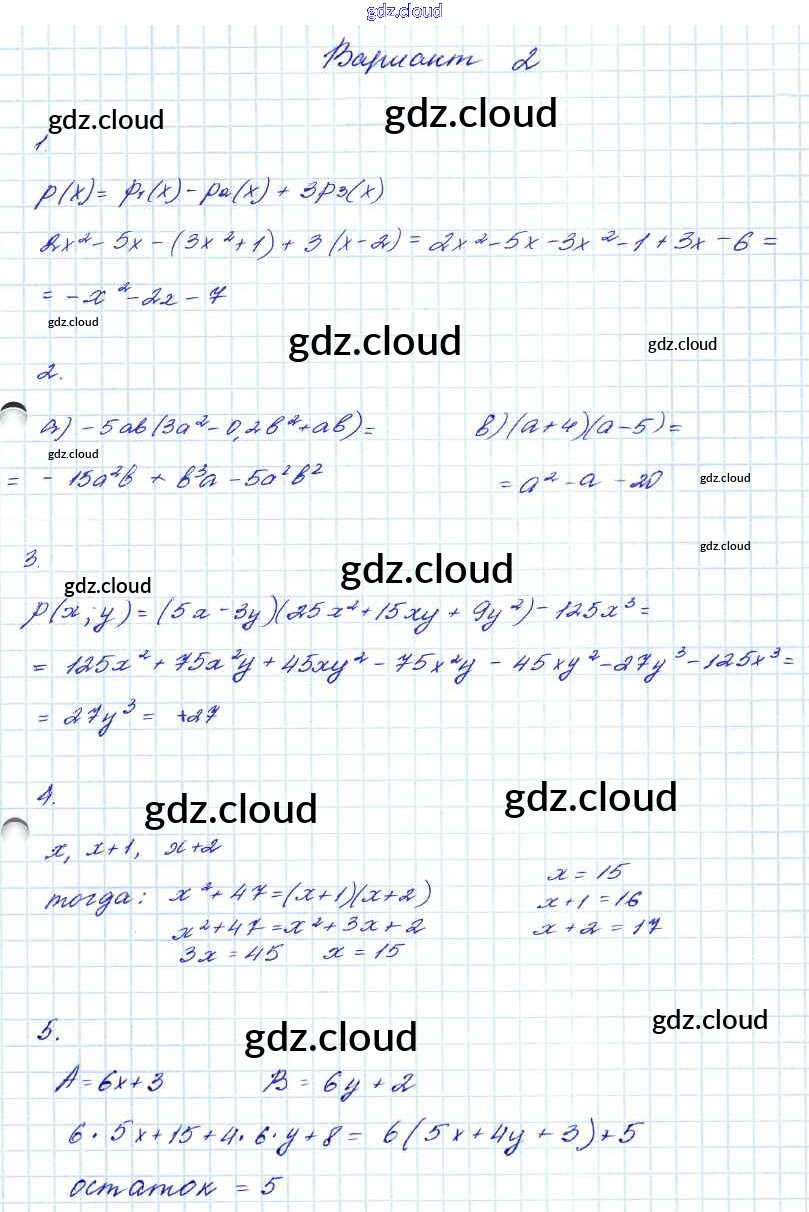 gdz.cloud
Вариант 2
gdz.cloud gdz.cloud
1.
p(x) = p₁(x) - p₂(x) + 3p₃(x)
2x² - 5x - (3x² + 1) + 3(x - 2) = 2x² - 5x - 3x² - 1 + 3x - 6 =
= -x² - 2x - 7
gdz.cloud gdz.cloud gdz.cloud
2.
а) -5ab(3a² - 0,2b² + ab) = в) (a + 4)(a - 5) =
gdz.cloud
= - 15a²b + b³a - 5a²b² = a² - a - 20 gdz.cloud
3. gdz.cloud
gdz.cloud gdz.cloud
p(x; y) = (5x - 3y)(25x² + 15xy + 9y²) - 125x³ =
= 125x² + 75x²y + 45xy² - 75x²y - 45xy² - 27y³ - 125x³ =
= 27y³ = +27
4.
gdz.cloud gdz.cloud
x, x+1, x+2
тогда: x² + 47 = (x+1)(x+2)
x² + 47 = x² + 3x + 2
3x = 45 x = 15
x = 15
x + 1 = 16
x + 2 = 17
5.
gdz.cloud gdz.cloud
A = 6x + 3 B = 6y + 2
6 · 5x + 15 + 4 · 6 · y + 8 = 6(5x + 4y + 3) + 5
остаток = 5